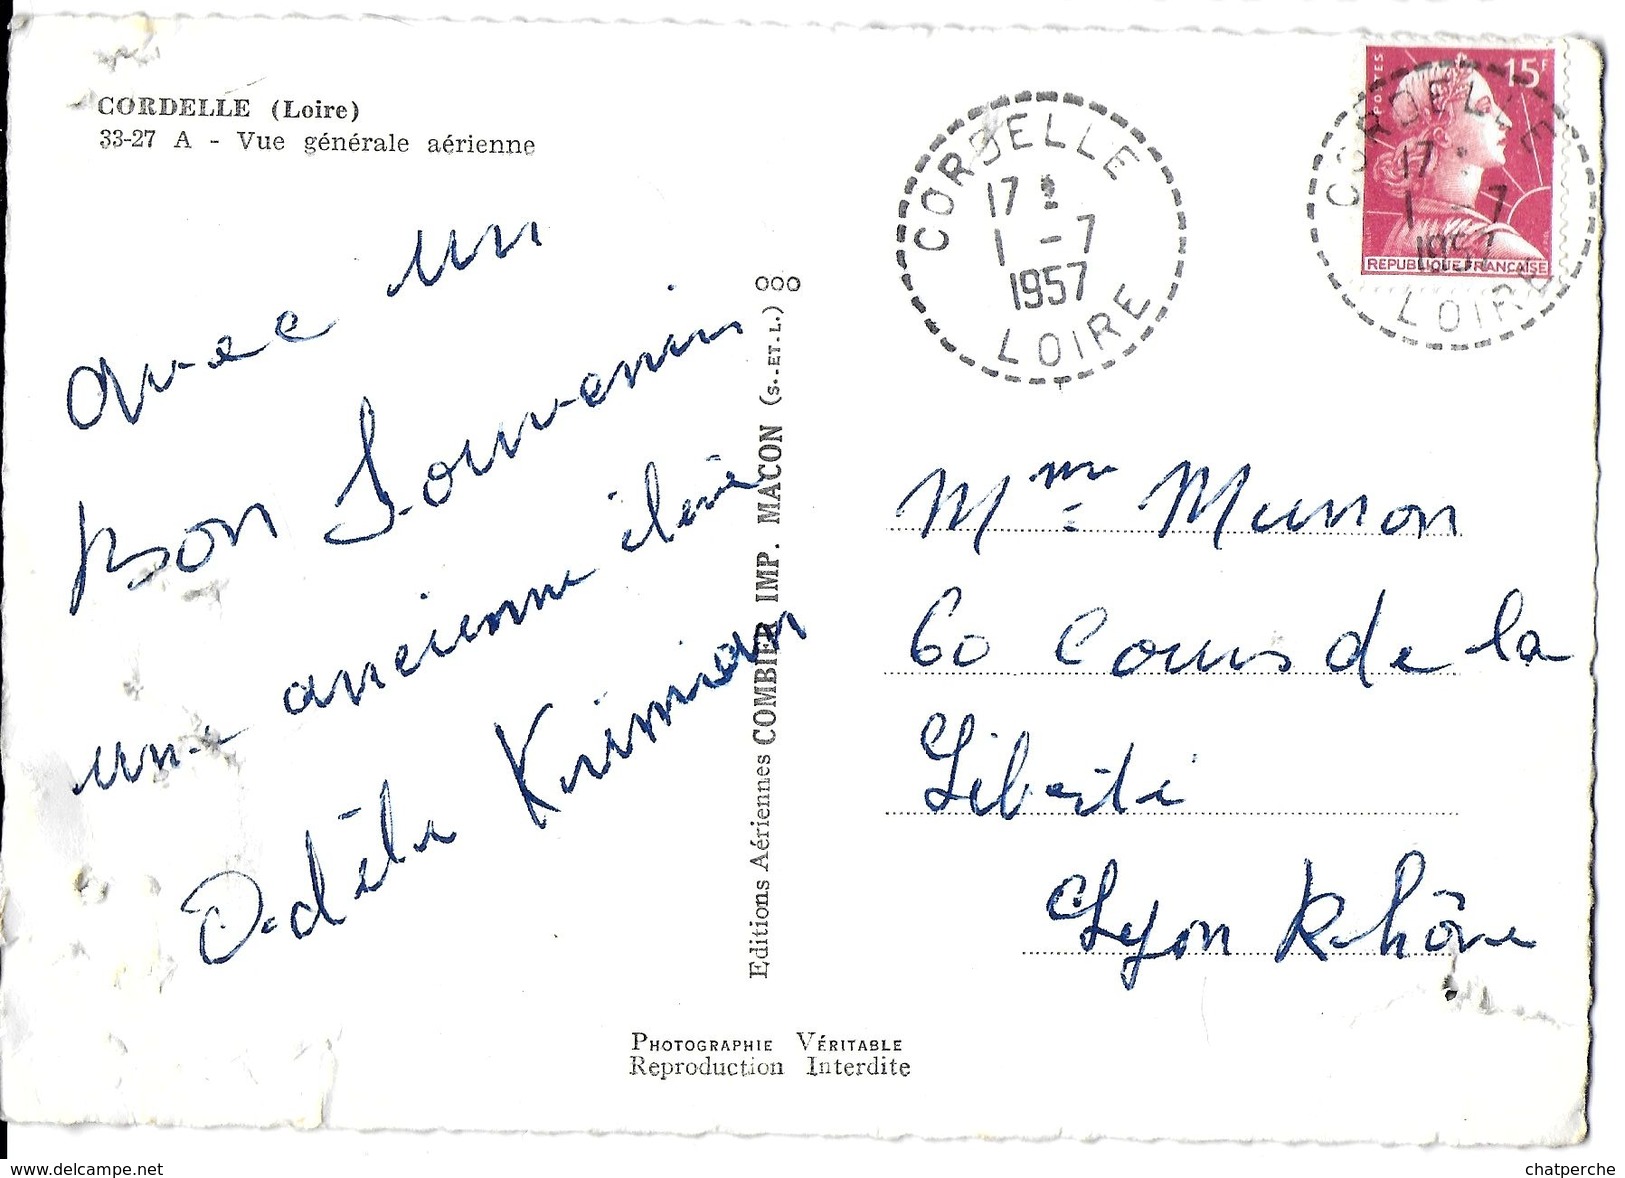 CORDELLE (Loire)
33-27 A - Vue générale aérienne
avec un
bon Souvenir
une ancienne élève
Odéle Krimian
Editions Aériennes COMBIER IMP. MACON (S.-ET-L.)
OOO
PHOTOGRAPHIE VÉRITABLE
Reproduction Interdite
CORDELLE
17
1 - 7
1957
LOIRE
POSTES
15F
REPUBLIQUE FRANÇAISE
CORDELLE
17
1 - 7
1957
LOIRE
Mme Munon
60 Cours de la
Liberté
Lyon Rhône
www.delcampe.net
chatperche